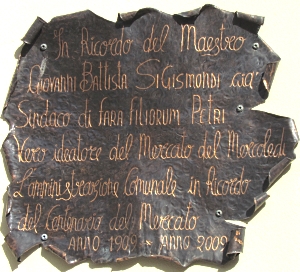 In Ricordo del Maestro
Giovanni Battista Sigismondi cav.
Sindaco di FARA FILIORUM PETRI
Vero ideatore del Mercato del Mercoledì
L'amministrazione Comunale in Ricordo
del Centenario del Mercato
ANNO 1909 * ANNO 2009